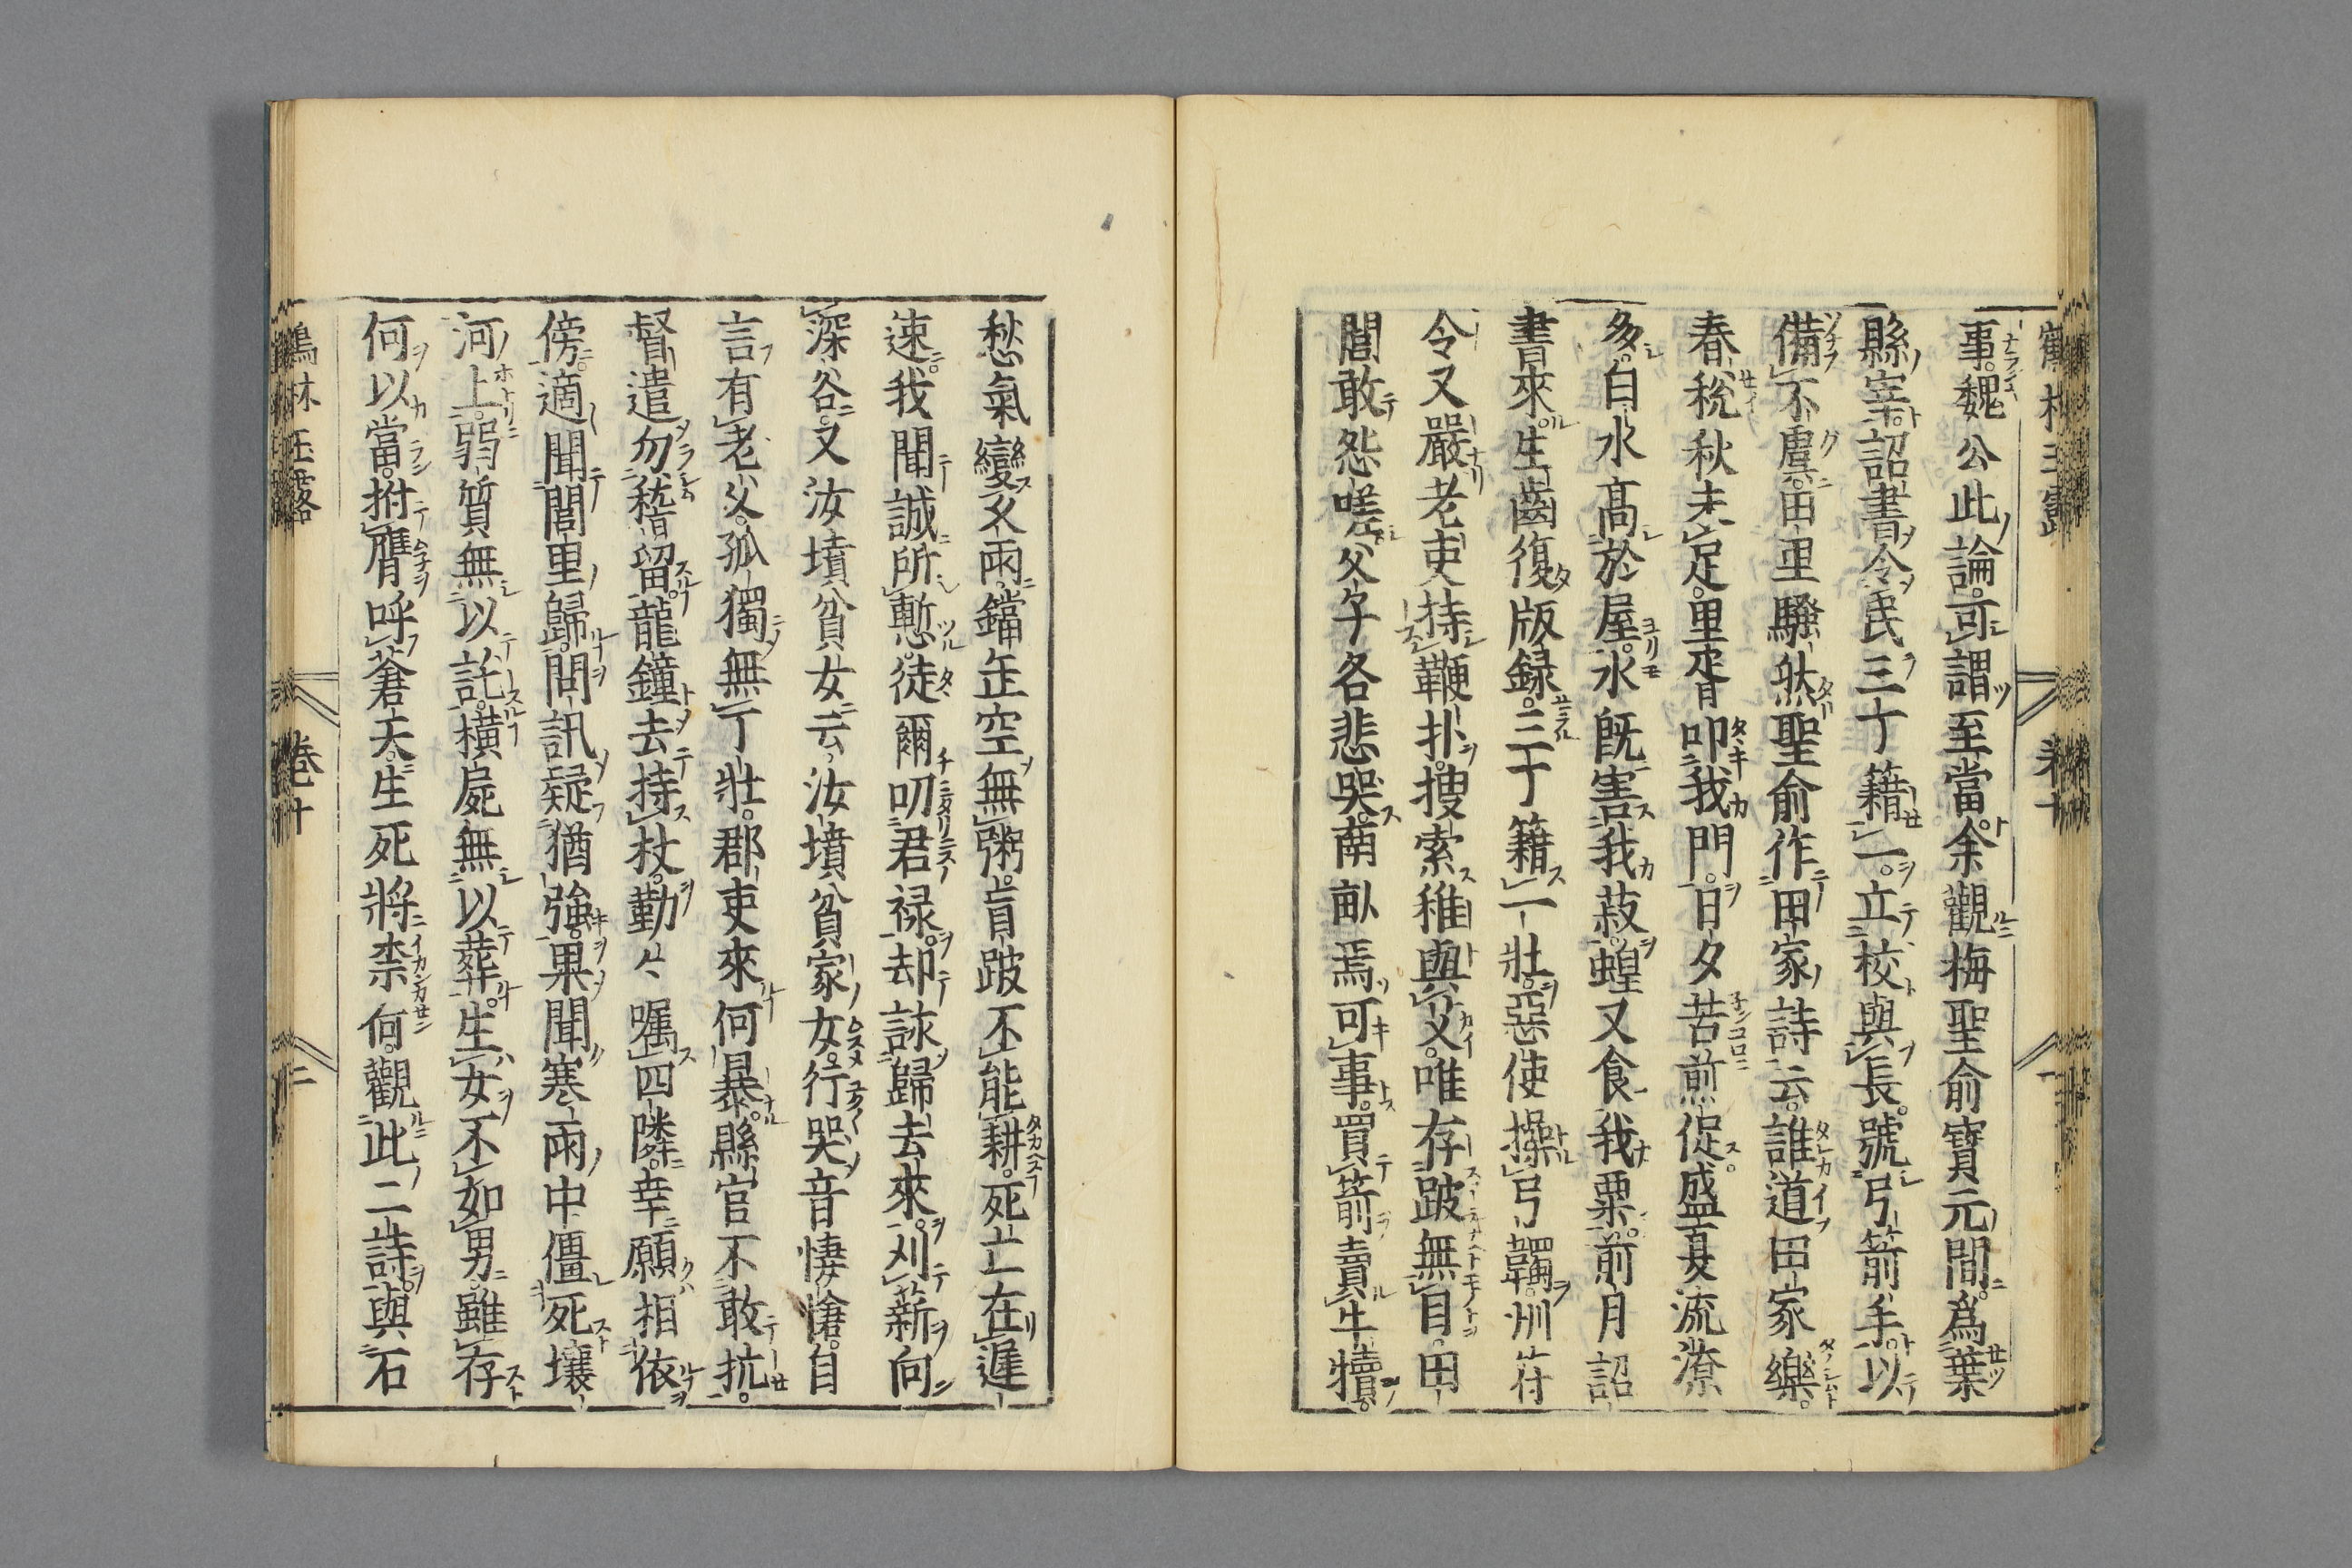 事魏公此論可謂至當余觀梅聖俞寶元間爲葉
縣宰詔書令民三丁籍一立校與長號弓箭手以
備不虞田里騷然聖俞作田家詩云誰道田家樂
春稅秋未足里胥叩我門日夕苦煎促盛夏流潦
多白水高於屋水既害我菽蝗又食我粟前月詔
書來生齒復版録三丁籍一壯惡使操弓韣州符
令又嚴老吏持鞭扑搜索稚與艾唯存跛無目田
閭敢怨嗟父子各悲哭南畝焉可事買箭賣牛犢
愁氣變久雨鐺缶空無粥盲跛不能耕死亡在遲
速我聞誠所慙徒爾叨君禄却詠歸去來刈薪向
深谷又汝墳貧女云汝墳貧家女行哭音悽愴自
言有老父孤獨無丁壯郡吏來何暴縣官不敢抗
督遣勿稽留龍鐘去持杖勤々囑四隣幸願相依
傍適聞閭里歸問訊疑猶強果聞寒雨中僵死壤
河上弱質無以託横屍無以葬生女不如男雖存
何以當拊膺呼蒼天生死將柰何觀此二詩與石
鶴林玉露 卷十 二